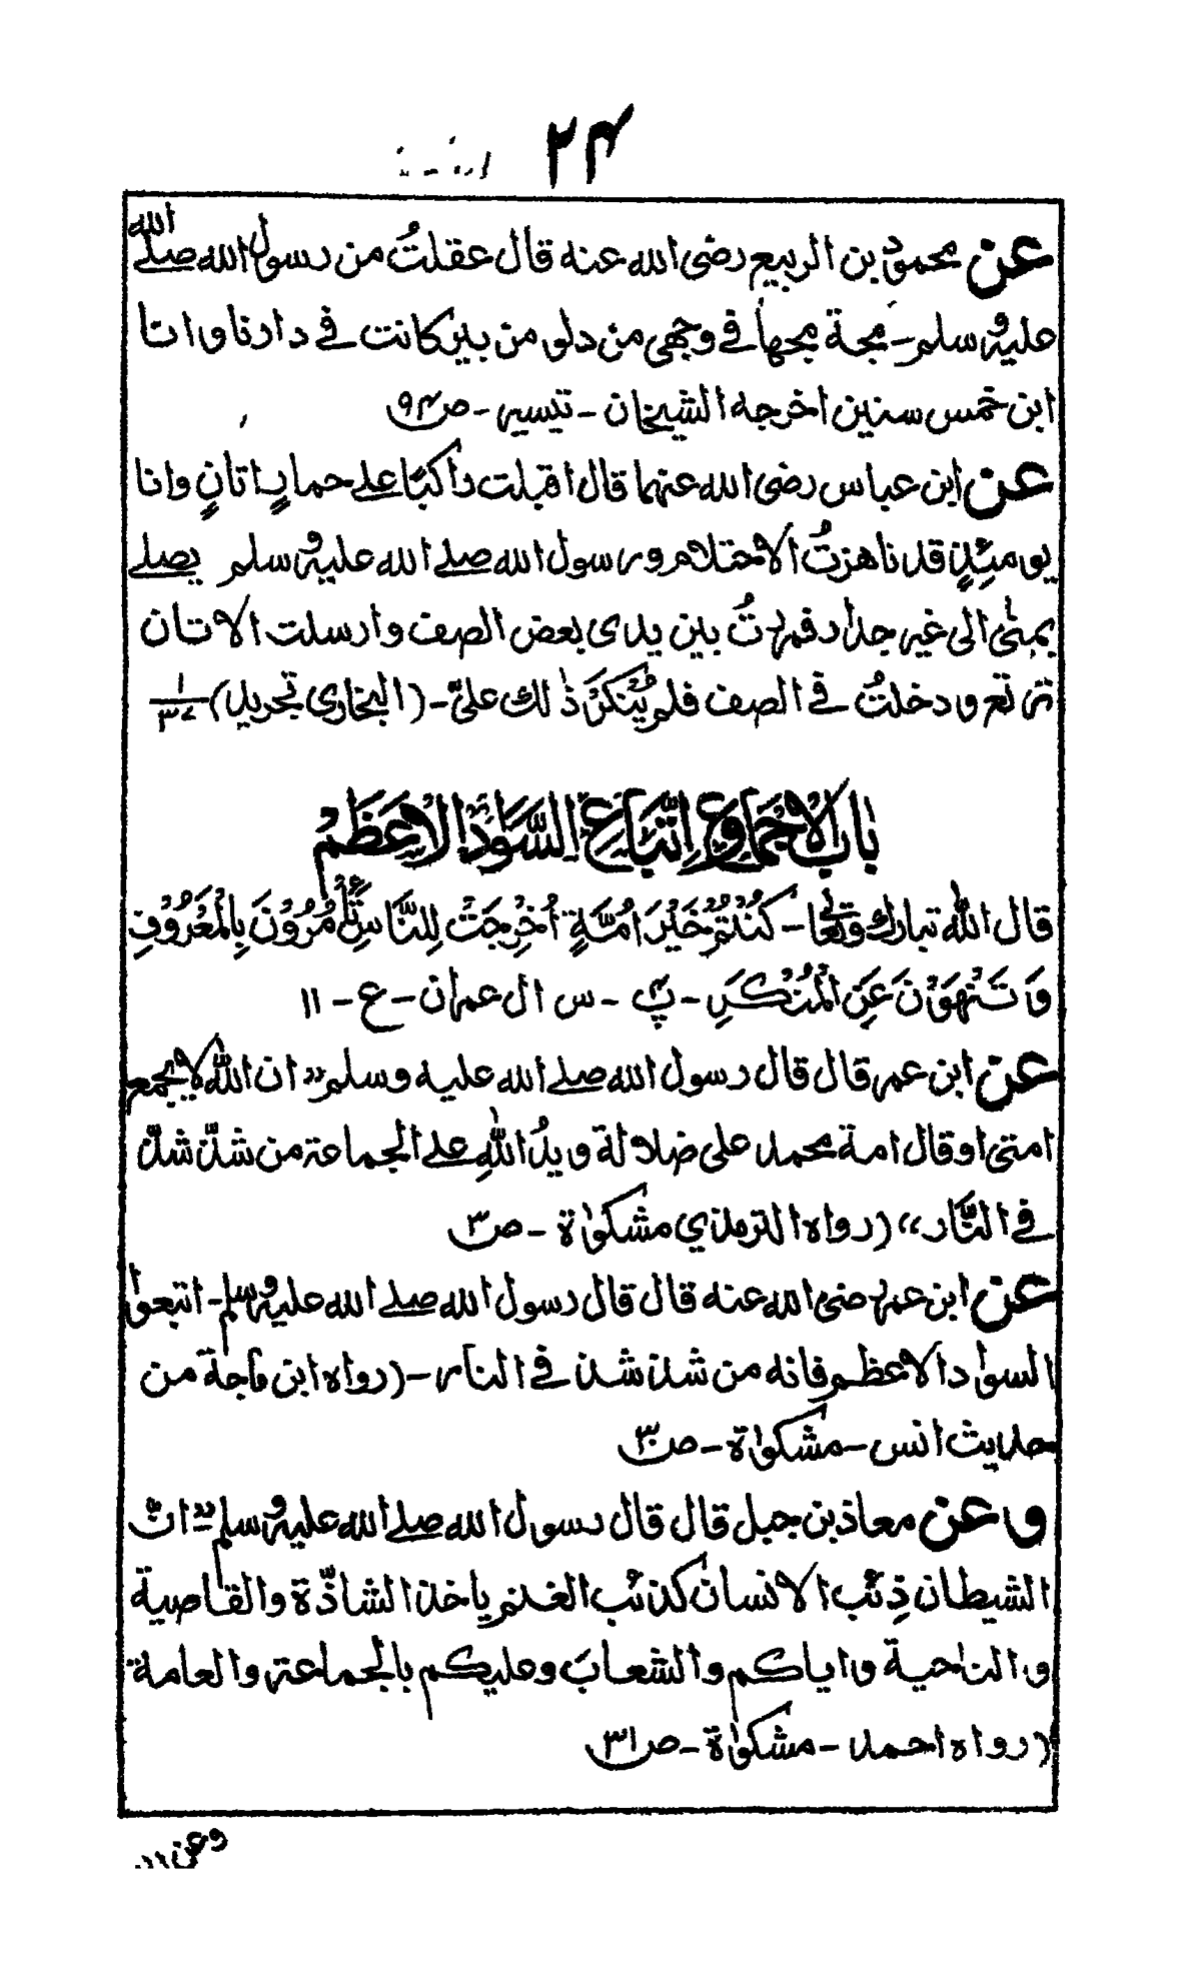 ۲۴
عن محمود بن الربيع رضى الله عنه قال عقلتُ من رسول الله صلے الله
عليه وسلم ـ مجة مجها في وجهى من دلو من بير كانت في دارنا وانا
ابن خمس سنين اخرجه الشيخان ـ تيسير ـ ص۹۴
عن ابن عباس رضى الله عنهما قال اقبلت راكبًا علے حمارٍ اتانٍ وانا
يومئِذٍ قد ناهزتُ الاحتلام ورسول الله صلے الله عليه وسلم يصلے
بمنٰى الى غير جدار فمررتُ بين يدى بعض الصف وارسلت الاتان
ترتع ودخلتُ في الصف فلم يُنْكَرْ ذٰلك علىَّ ـ (البخاري تجريد) ۱/۳۷
باب الاجماع واِتِّبَاعِ السَّوَادِ الاَعْظَمْ
قال اللّٰه تبارك وتعٰلٰى ـ كُنْتُمْ خَيْرَ اُمَّةٍ اُخْرِجَتْ لِلنَّاسِ تَأْمُرُوْنَ بِالْمَعْرُوْفِ
وَ تَنْهَوْنَ عَنِ الْمُنْكَرِ ـ پ۴ ـ س ال عمران ـ ع ـ ۱۱
عن ابن عمر قال قال رسول الله صلے الله عليه وسلم ”ان اللّٰه لا يجمع
امتى او قال امة محمد على ضلالة ويدُ اللّٰهِ علے الجماعة من شذّ شذّ
في النَّار“ (رواه الترمذي مشكوٰة ـ ص۳۰
عن ابن عمر رضى الله عنه قال قال رسول الله صلے الله عليه وسلم ـ اتبعوا
السواد الاعظم فانه من شذ شذ في النار ـ (رواه ابن ماجة من
حديث انس ـ مشكوٰة ـ ص۳۰
وعن معاذ بن جبل قال قال رسول الله صلے الله عليه وسلم ”انّ
الشيطان ذِئب الانسان كذئب الغنم ياخذ الشاذّة والقاصية
والناحية واياكم والشعابَ وعليكم بالجماعة والعامة
(رواه احمد ـ مشكوٰة ـ ص۳۱
وعن